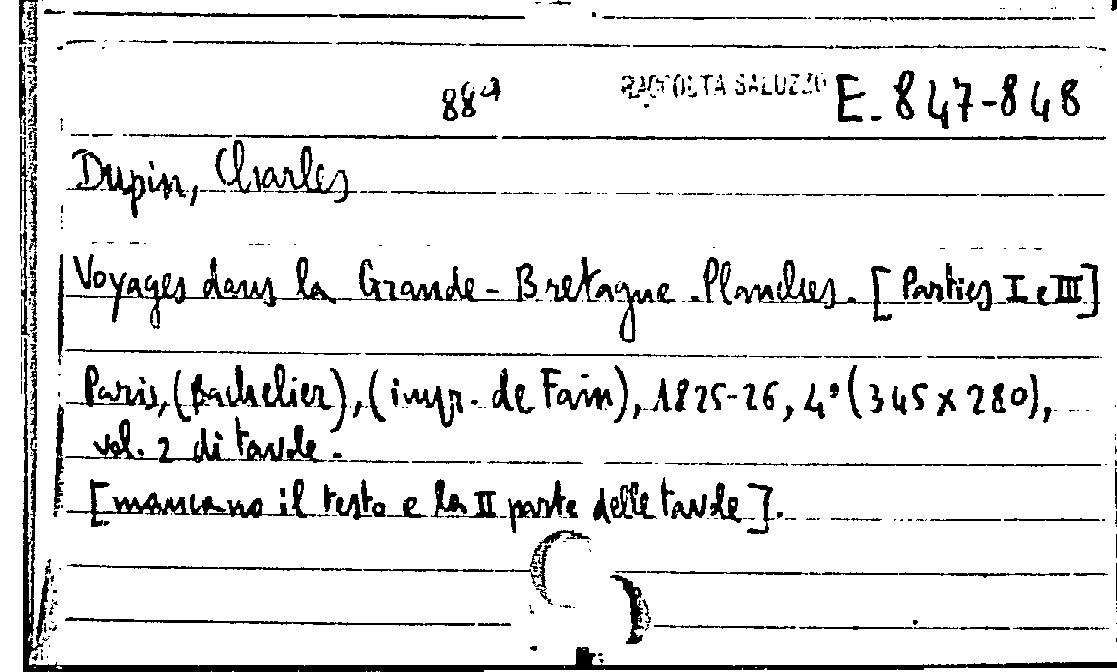 88a RACCOLTA SALUZZO E. 847-848
Dupin, Charles
Voyages dans la Grande-Bretagne. Planches. [Parties I e III]
Paris, (Bachelier), (impr. de Fain), 1825-26, 4° (345 x 280),
vol. 2 di tavole.
[mancano il testo e la II parte delle tavole].